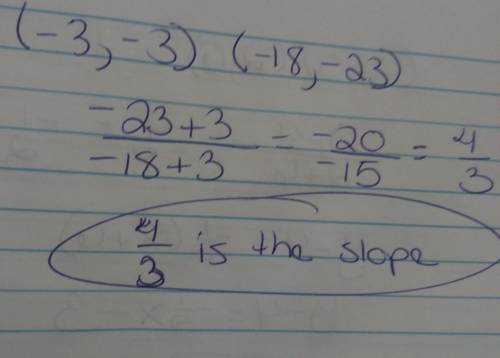 (-3, -3) (-18, -23)
-23+3 / -18+3 = -20 / -15 = 4 / 3
4 / 3 is the slope